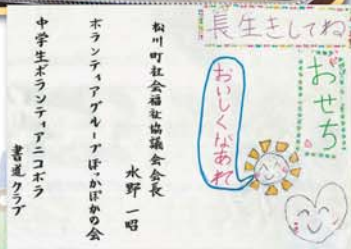 長生きしてね
おせち
おいしくなあれ
松川町社会福祉協議会会長
水野一昭
ボランティアグループぽっかぽかの会
中学生ボランティアニコボラ
書道クラブ